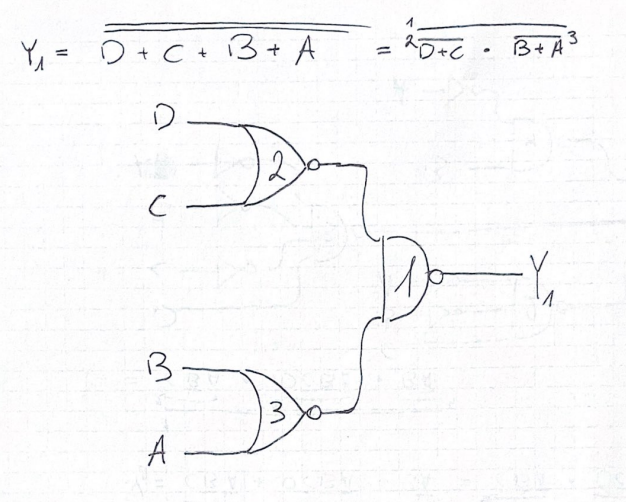 Y₁ = \overline{\overline{D + C + B + A}} = ¹\overline{²\overline{D+C} · \overline{B+A}³}
D
2
C
1
Y₁
B
3
A